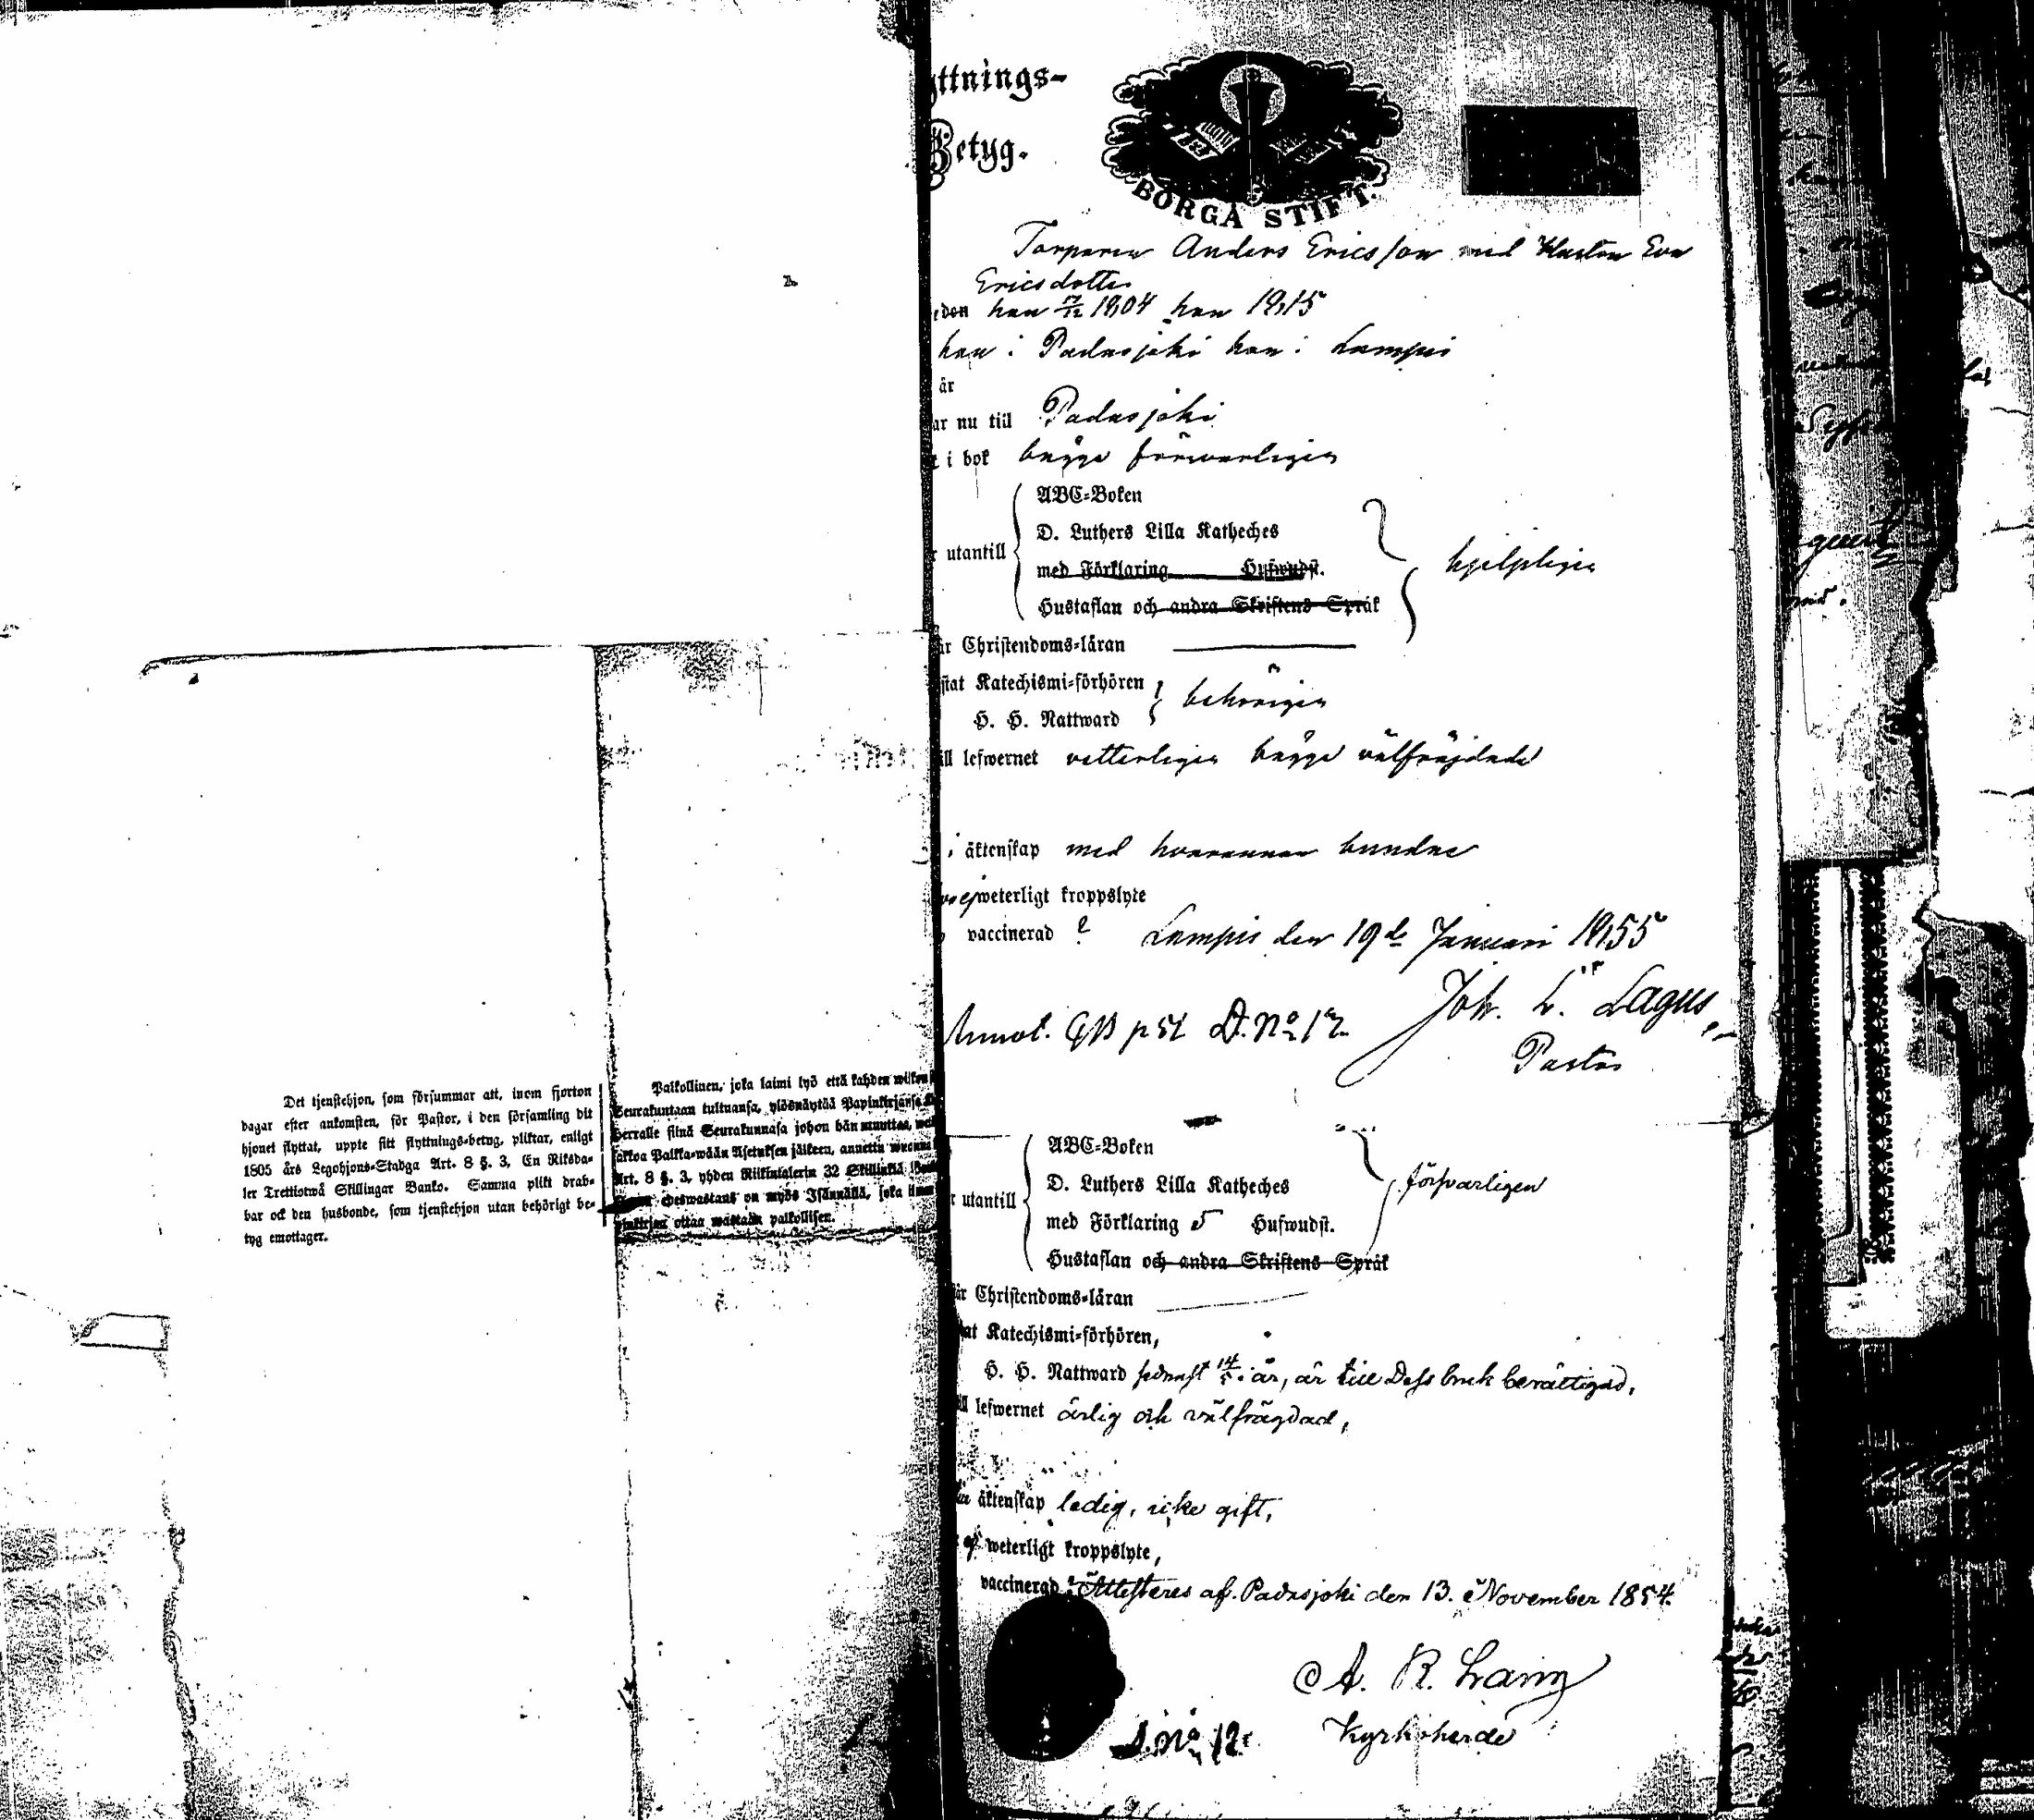 ttnings-
Betyg.
BORGÅ STIFT.
Torparen Anders Ericsson med Hustru Eva
Ericsdotter
han 1804 hon 1815
han i Padasjoki hon i Lampis
är
ar nu till Padasjoki
i bok bägge försvarligen
ABC-Boken
D. Luthers Lilla Katheches
med Förklaring Hufwudst.
utantill
hjelpligen
Hustaflan och andra Skriftens Språk
är Christendoms-läran
stat Katechismi-förhören
behörigen
H. H. Nattward
ill lefwernet vetterligen bägge välfräjdade
i äktenskap med hvarannan bundne
ej weterligt kroppslyte
vaccinerad Lampis den 19de Januari 1855
Joh. L. Lagus
Annot. D. No 12
Pastor
Det tjenstehjon, som försummar att, inom fjorton
dagar efter ankomsten, för Pastor, i den församling dit
hjonet flyttat, uppte sitt flyttnings-betyg, pliktar, enligt
1805 års Legohjons-Stadga Art. 8 §. 3, En Riksda-
ler Trettiotwå Skillingar Banko. Samma plikt drab-
bar ock den husbonde, som tjenstehjon utan behörigt be-
tyg emottager.
Palkollinen, joka laimi lyö että kahden wiikon
Seurakuntaan tultuansa, ylösnäyttää Papinkirjansa
Herralle siinä Seurakunnasa johon hän muuttaa,
sakkoa Palkka-wään Asetuksen jälkeen, annettu wuonna
Art. 8 §. 3, yhden Riikintalerin 32 Skillinkiä
edeswastaus on myös Isännällä, joka
pinkirjaa ottaa wastaan palkollisen.
ABC-Boken
D. Luthers Lilla Katheches
utantill
försvarligen
med Förklaring Hufwudst.
Hustaflan och andra Skriftens Språk
är Christendoms-läran
at Katechismi-förhören,
H. H. Nattward senast 14 i år, är till Dess bruk berättigad,
ill lefwernet ärlig och välfrägdad,
äktenskap ledig, icke gift,
ej weterligt kroppslyte,
vaccinerad. Attesteres af. Padasjoki den 13. November 1854.
A. R.
D. No 12. Kyrkoherde